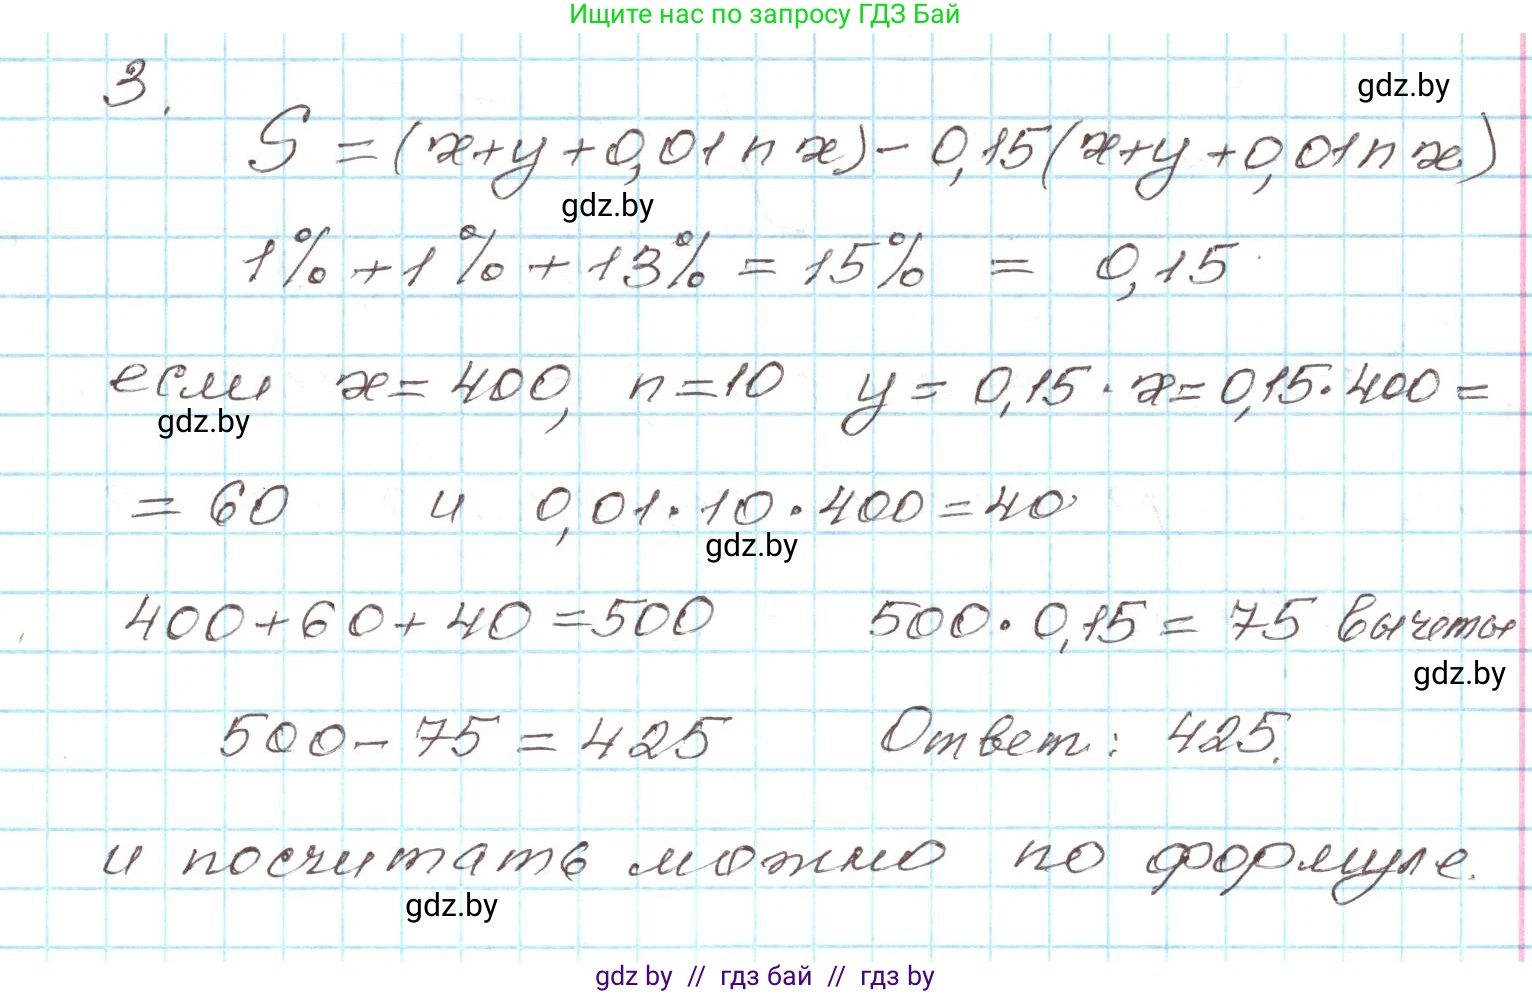 Ищите нас по запросу ГДЗ Бай
3.
gdz.by
S = (x+y+0,01nx) - 0,15(x+y+0,01nx)
gdz.by
1% + 1% + 13% = 15% = 0,15
если x = 400, n = 10 y = 0,15 · x = 0,15 · 400 =
gdz.by
= 60 и 0,01 · 10 · 400 = 40
gdz.by
400 + 60 + 40 = 500 500 · 0,15 = 75 вычеты
gdz.by
500 - 75 = 425 Ответ: 425.
и посчитать можно по формуле.
gdz.by
gdz by // гдз бай // гдз by